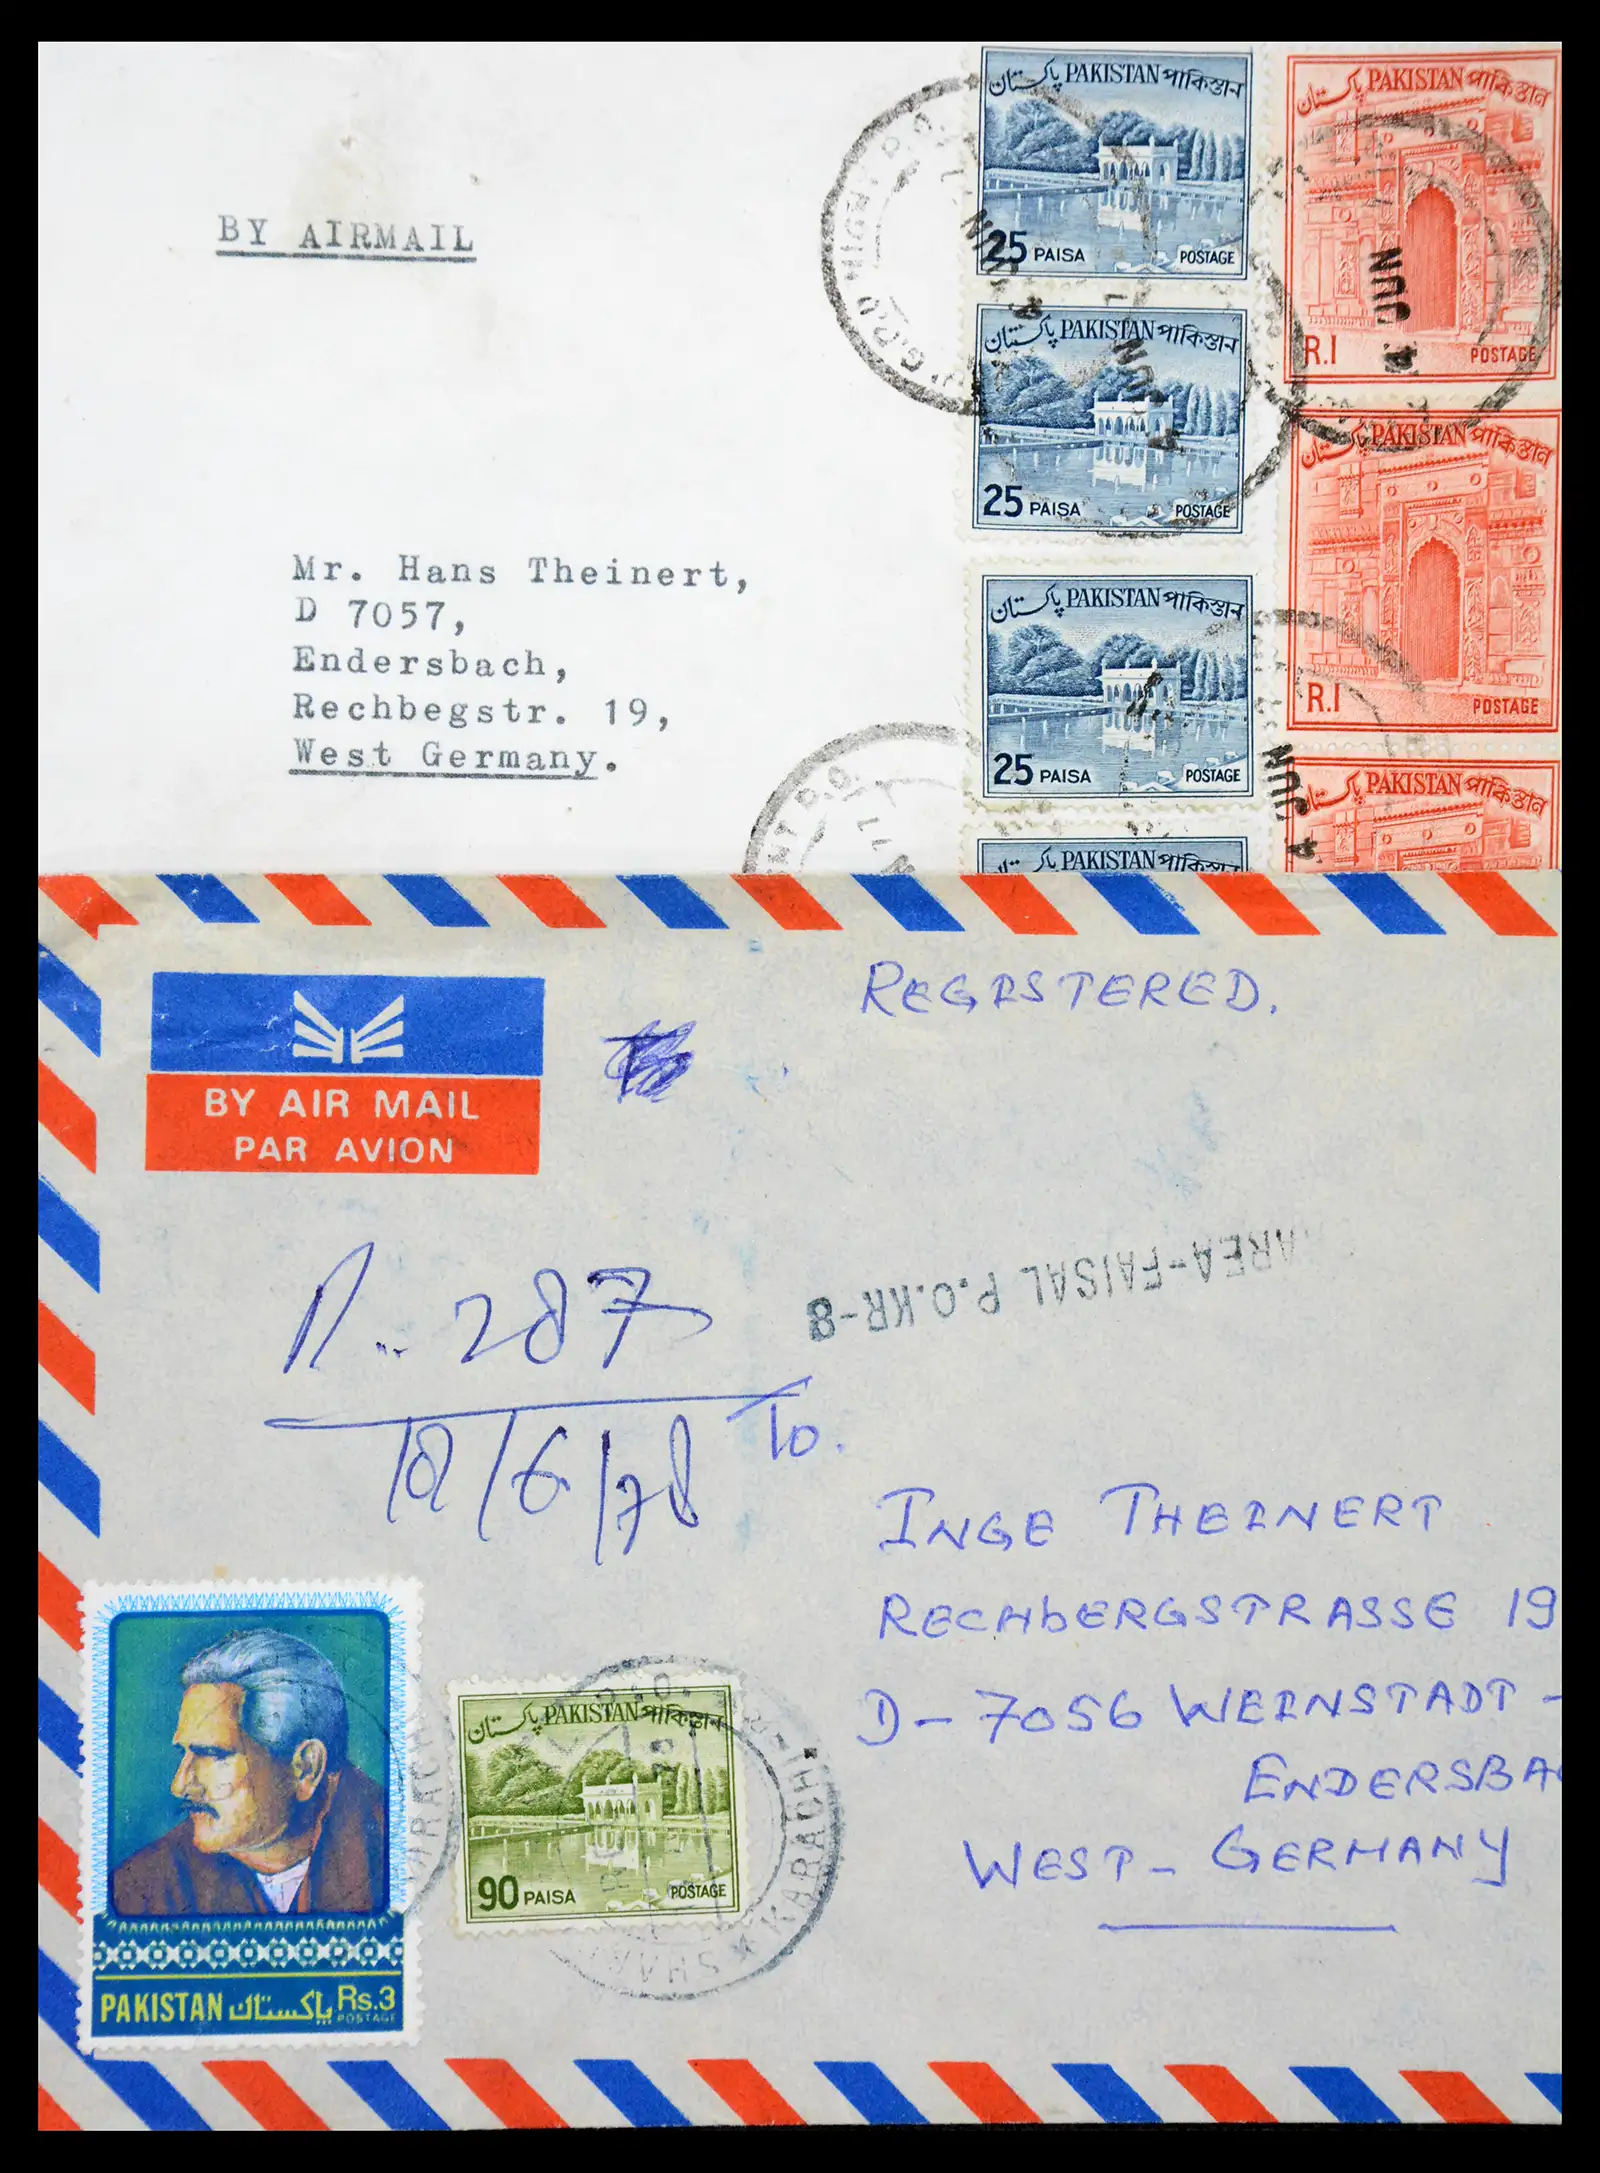 BY AIRMAIL
Mr. Hans Theinert,
D 7057,
Endersbach,
Rechbegstr. 19,
West Germany.
پاکستان PAKISTAN পাকিস্তান
25 PAISA POSTAGE
پاکستان PAKISTAN পাকিস্তান
25 PAISA POSTAGE
پاکستان PAKISTAN পাকিস্তান
25 PAISA POSTAGE
PAKISTAN পাকিস্তান
پاکستان PAKISTAN পাকিস্তান
R.I POSTAGE
پاکستان PAKISTAN পাকিস্তান
R.I POSTAGE
پاکستان PAKISTAN পাকিস্তান
NIGHT P.O.
G.P.O.
JUN
JUN
4 JUN
4 JUN
P.O.
REGISTERED.
BY AIR MAIL
PAR AVION
AREA-FAISAL P.O.KR-8
287
18/6/78
To.
INGE THEINERT
RECHBERGSTRASSE 19
D-7056 WEINSTADT-
ENDERSBA
WEST-GERMANY
PAKISTAN پاکستان Rs.3
POSTAGE
پاکستان PAKISTAN পাকিস্তান
90 PAISA POSTAGE
KARACHI